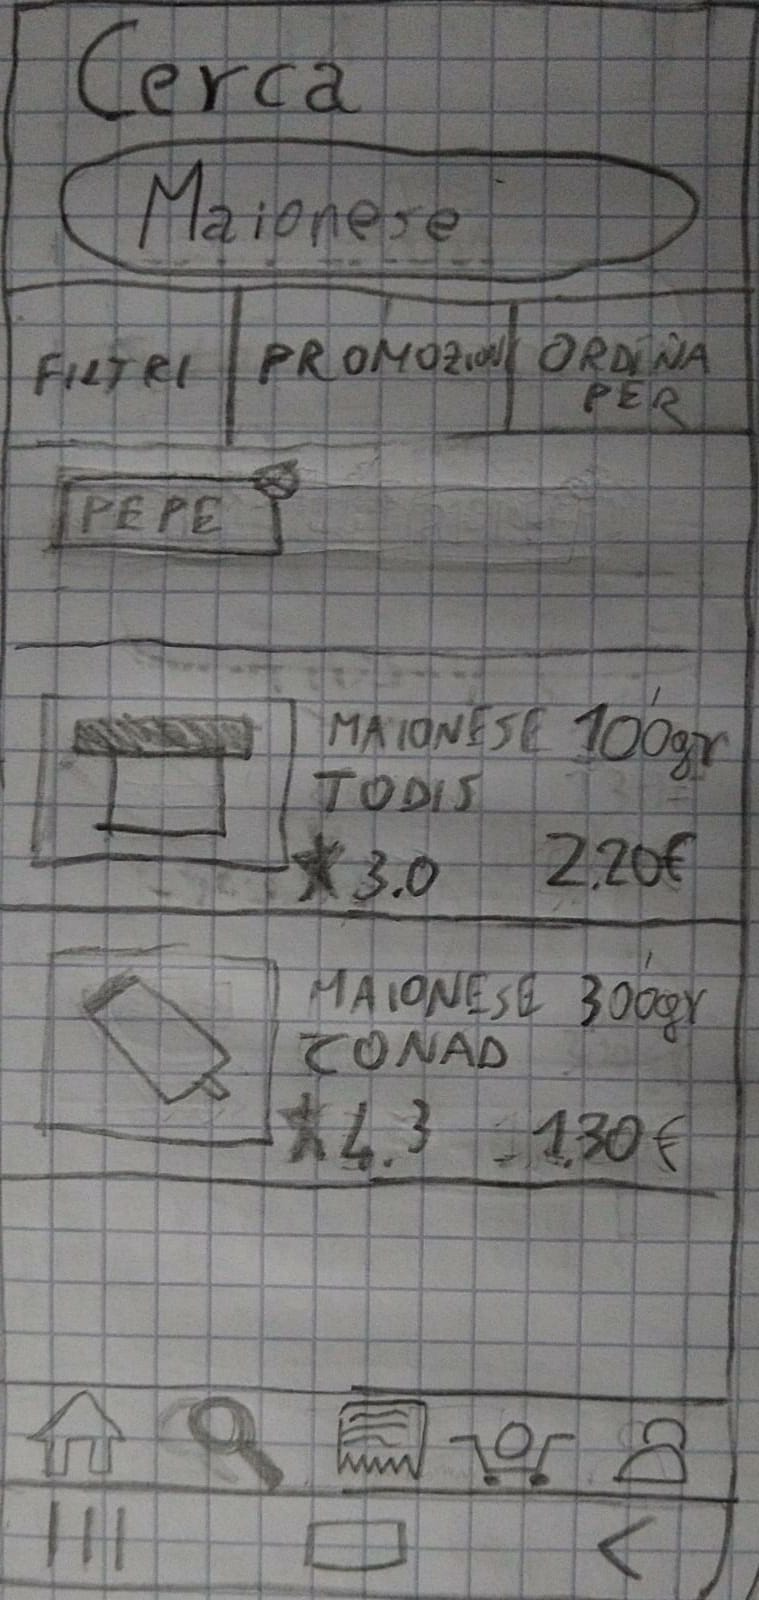 Cerca
Maionese
FILTRI PROMOZIONI ORDINA
PER
PEPE
MAIONESE 100gr
TODIS
★ 3.0 2.20€
MAIONESE 300gr
CONAD
★ 4.3 1.30€